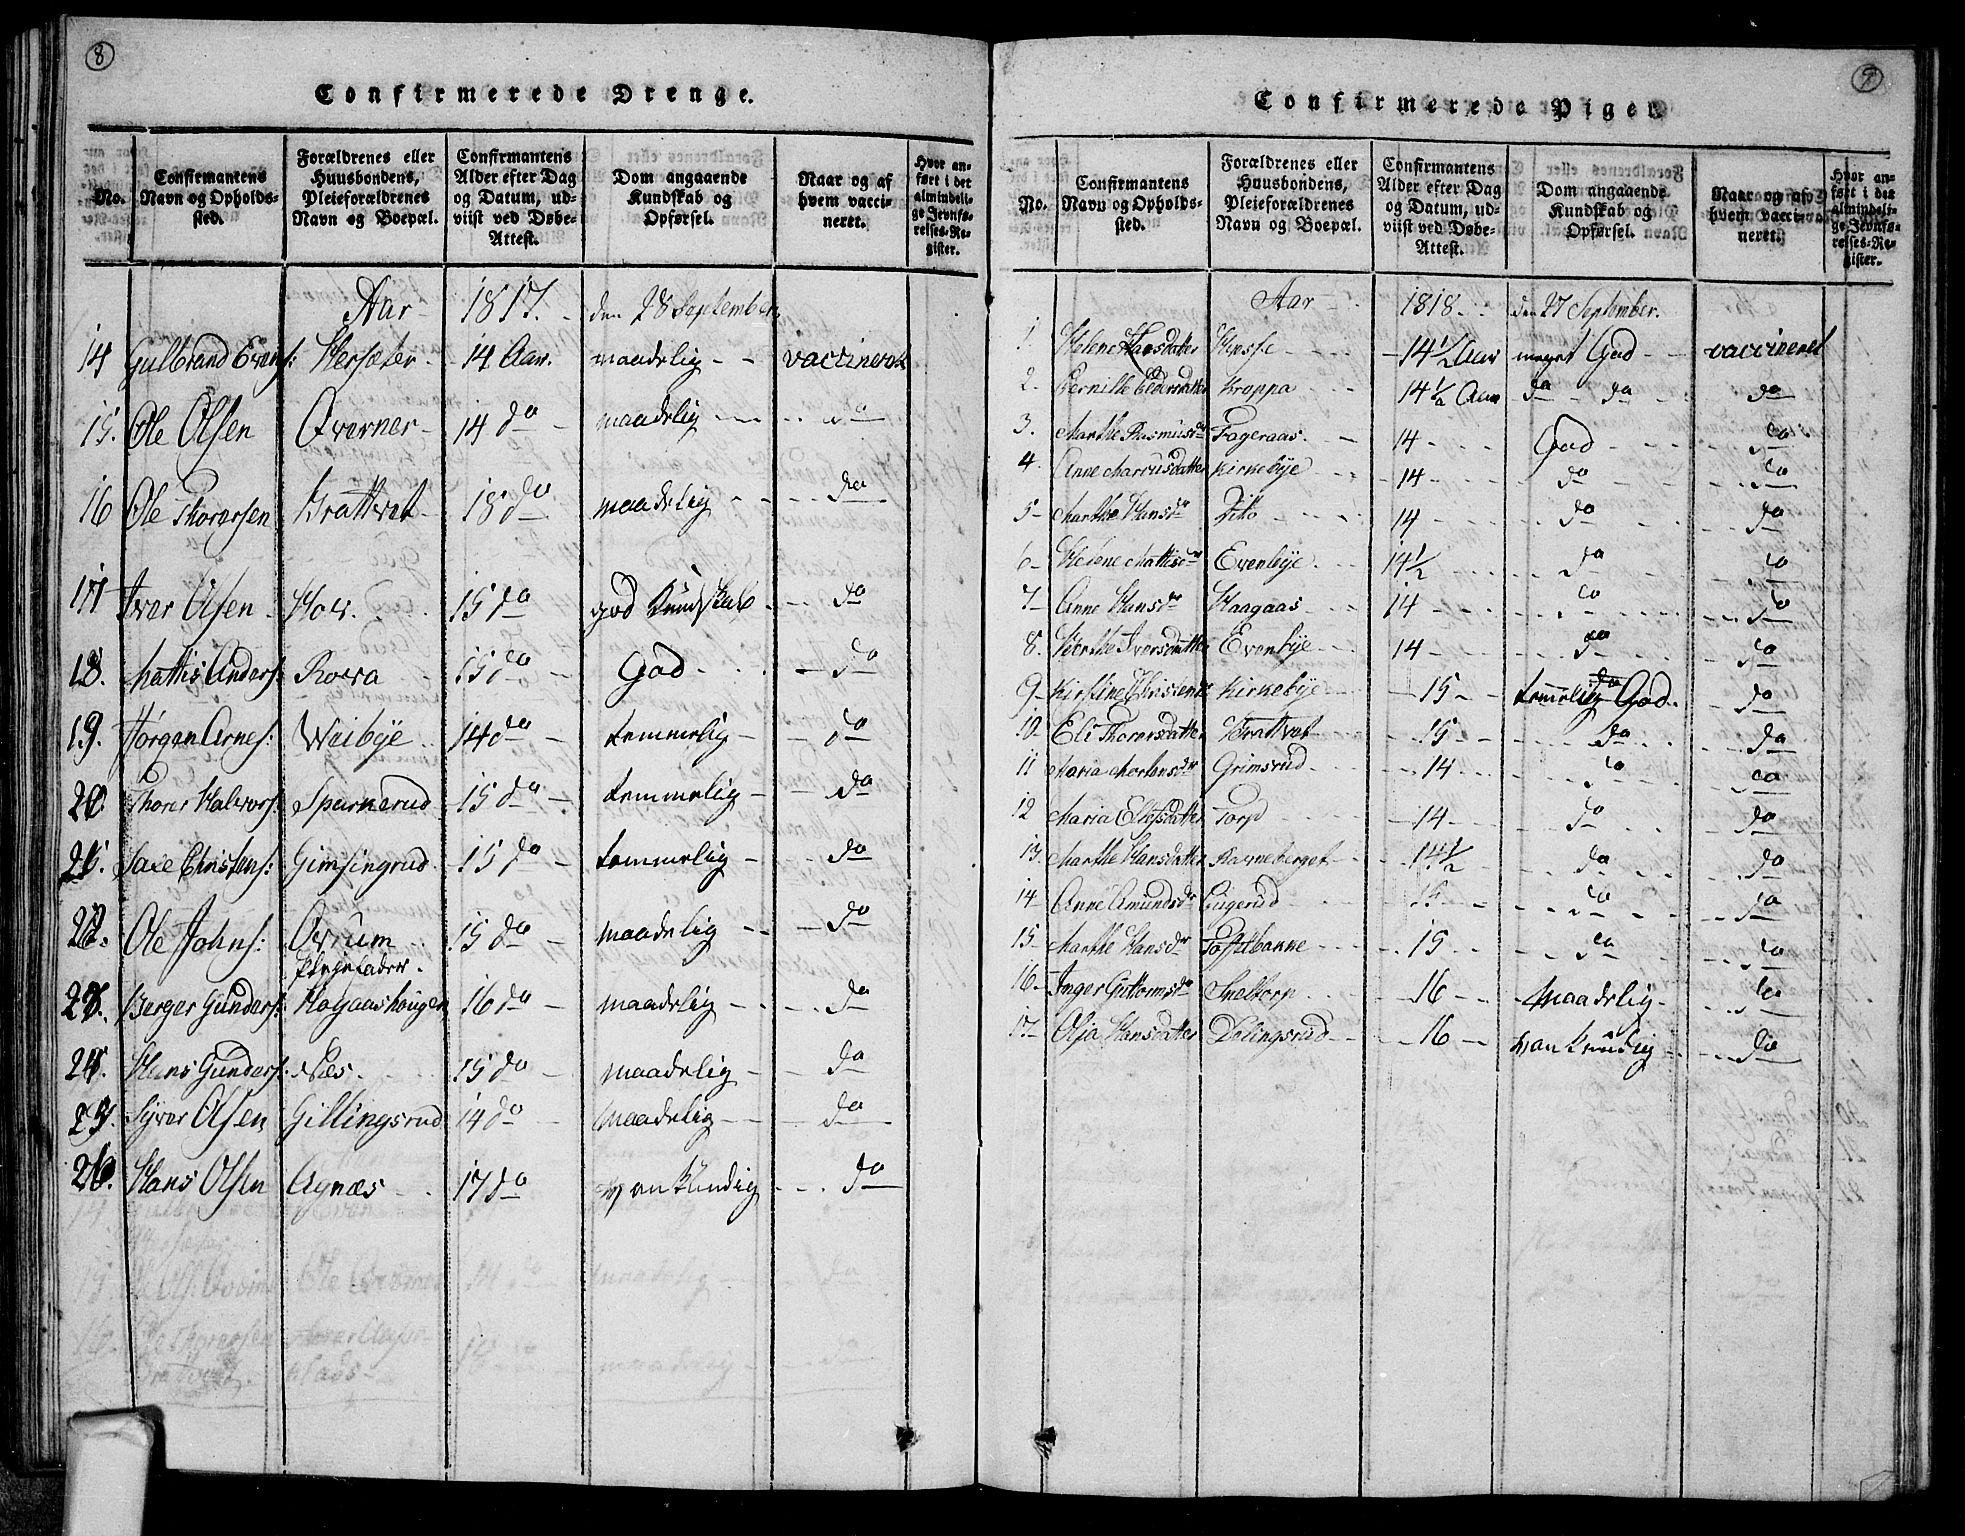 8
Confirmerede Drenge.
No. | Confirmantens Navn og Opholdssted. | Forældrenes eller Huusbondens, Pleieforældrenes Navn og Boepæl. | Confirmantens Alder efter Dag og Datum, udviist ved Døbe-Attest. | Dom angaaende Kundskab og Opførsel. | Naar og af hvem vaccineret. | Hvor anført i det almindelige Jevnførelses-Register.
Aar 1817. den 28 September
14 Gulbrand Evens: Herseter 14 Aar. maadelig vaccineret
15. Ole Olsen Overner 14 do maadelig do
16 Ole Thorersen Brattvet 15 do maadelig do
17 Iver Olsen Hov 15 do god Kundskab do
18. Mattis Anders: Roera 15 do God do
19. Jørgen Arnes: Weibye 14 do temmelig do
20 Thorer Halvors: Sparnerud 15 do temmelig do
21. Saxe Christens: Gimsingrud 15 do temmelig do
22. Ole Johns: Overum 15 do maadelig do
Plejefader
23. Berger Gunders: Hogaashougen 16 do maadelig do
24. Hans Gunders: Næs 15 do maadelig do
25. Syver Olsen Gillingsrud 14 do maadelig do
26. Hans Olsen Agnæs 17 do vankundig do
9
Confirmerede Piger
No. | Confirmantens Navn og Opholdssted. | Forældrenes eller Huusbondens, Pleieforældrenes Navn og Boepæl. | Confirmantens Alder efter Dag og Datum, udviist ved Døbe-Attest. | Dom angaaende Kundskab og Opførsel. | Naar og af hvem vaccineret. | Hvor anført i det almindelige Jevnførelses-Register.
Aar 1818. den 27 September.
1. Helene Hansdatter 14 1/2 Aar meget God vaccineret
2. Pernille Pedersdatter Kroppa 14 1/2 Aar do do do
3. Marthe Rasmusdr Fageraas 14 God do
4. Anne Marcusdatter Kirkebye 14 do do
5 Marthe Hansdr Dito 14 do do
6 Helene Mattisdr Evenbye 14 1/2 do do
7 Anne Hansdr Haagaas 14 do do
8. Berthe Iversdatter Evenbye 14 do do
9 Kirstine Christendr Kirkebye 15 temmelig God do
10. Eli Thorersdatter Brattvet 15 do do
11 Maria Mortensdr Grimsrud 14 do do
12 Maria Elefsdatter Torp 14 do do
13. Marthe Hansdatter Ravneberget 14 1/2 do do
14 Anne Amundsdr Lugerud 15 do do
15. Marthe Hansdr 15 do do
16 Inger Guttormsdr Skeltorp 16 Maadelig do
17. Olja Hansdatter Delingsrud 16 vankundig do